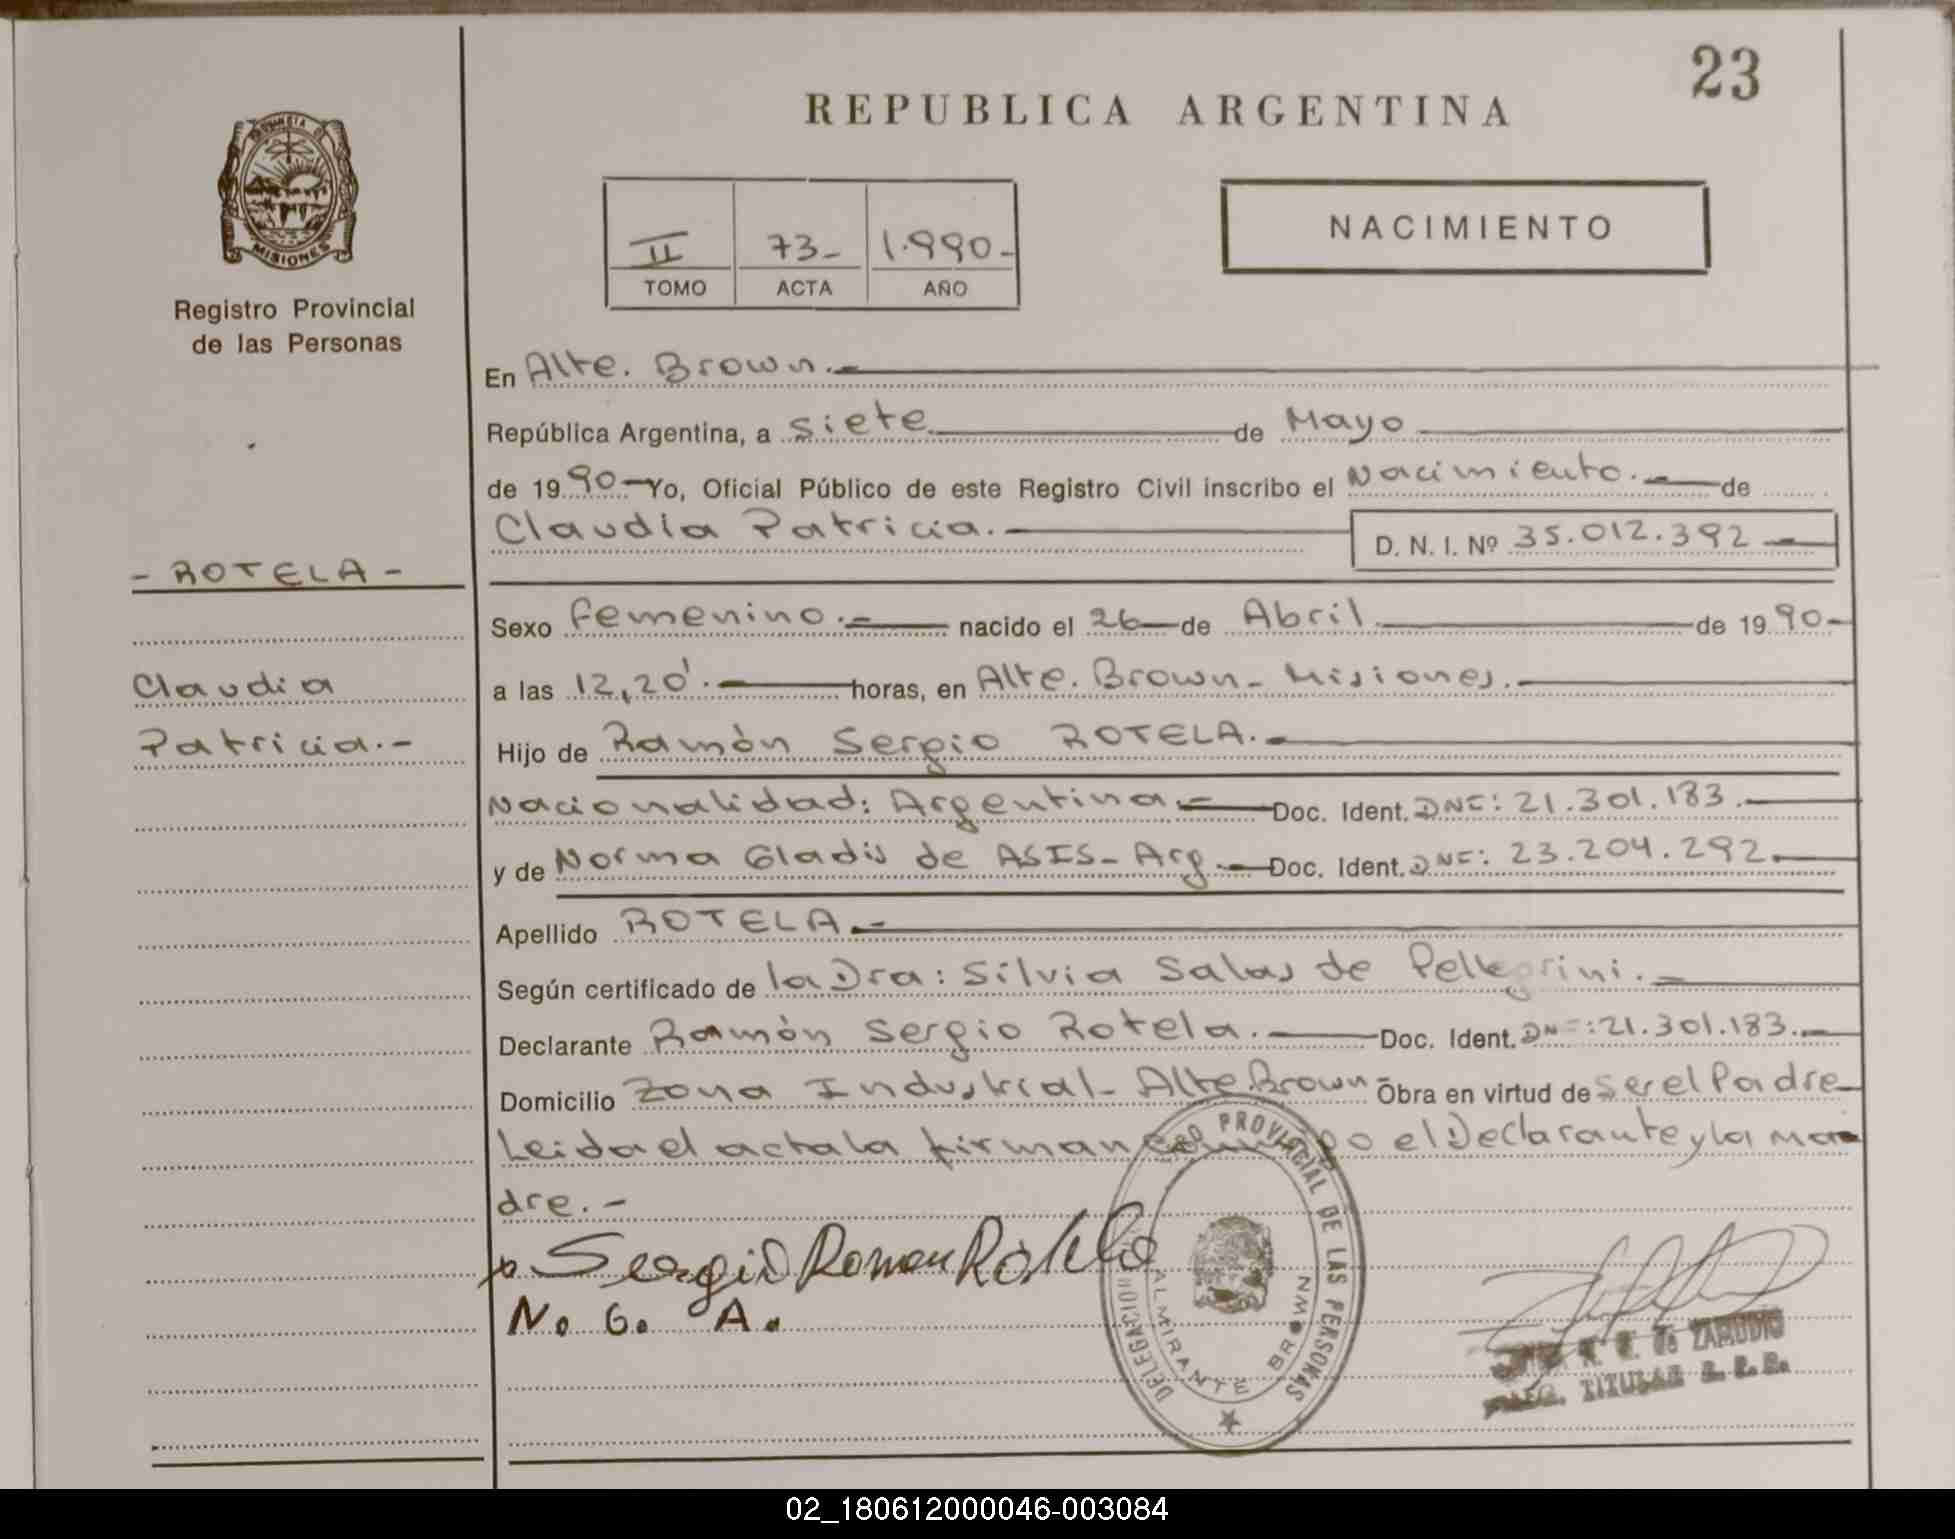 23
REPUBLICA ARGENTINA
PROVINCIA DE
MISIONES
Registro Provincial
de las Personas
II 73- 1.990-
TOMO ACTA AÑO
NACIMIENTO
En Alte. Brown.-
República Argentina, a siete de Mayo
de 19 90- Yo, Oficial Público de este Registro Civil inscribo el Nacimiento.- de
Claudia Patricia.- D. N. I. Nº 35.012.392
- ROTELA -
Sexo femenino.- nacido el 26 de Abril de 19 90-
Claudia
a las 12,20'.- horas, en Alte. Brown- Misiones.-
Patricia.-
Hijo de Ramón Sergio ROTELA.-
Nacionalidad: Argentina.- Doc. Ident. DNI: 21.301.183.-
y de Norma Gladis de ASIS- Arg.- Doc. Ident. DNI: 23.204.292.-
Apellido ROTELA.-
Según certificado de la Dra: Silvia Salas de Pellegrini.-
Declarante Ramón Sergio Rotela.- Doc. Ident. DNI: 21.301.183.-
Domicilio Zona Industrial- Alte. Brown- Obra en virtud de ser el Padre
Leida el acta la firman el Declarante y la Ma
dre.-
Sergio Ramon Rotela
N. G. A.
PROVINCIAL DE LAS PERSONAS
DELEGACION
ALMIRANTE BROWN
ZAMUDIO
TITULAR
02_180612000046-003084